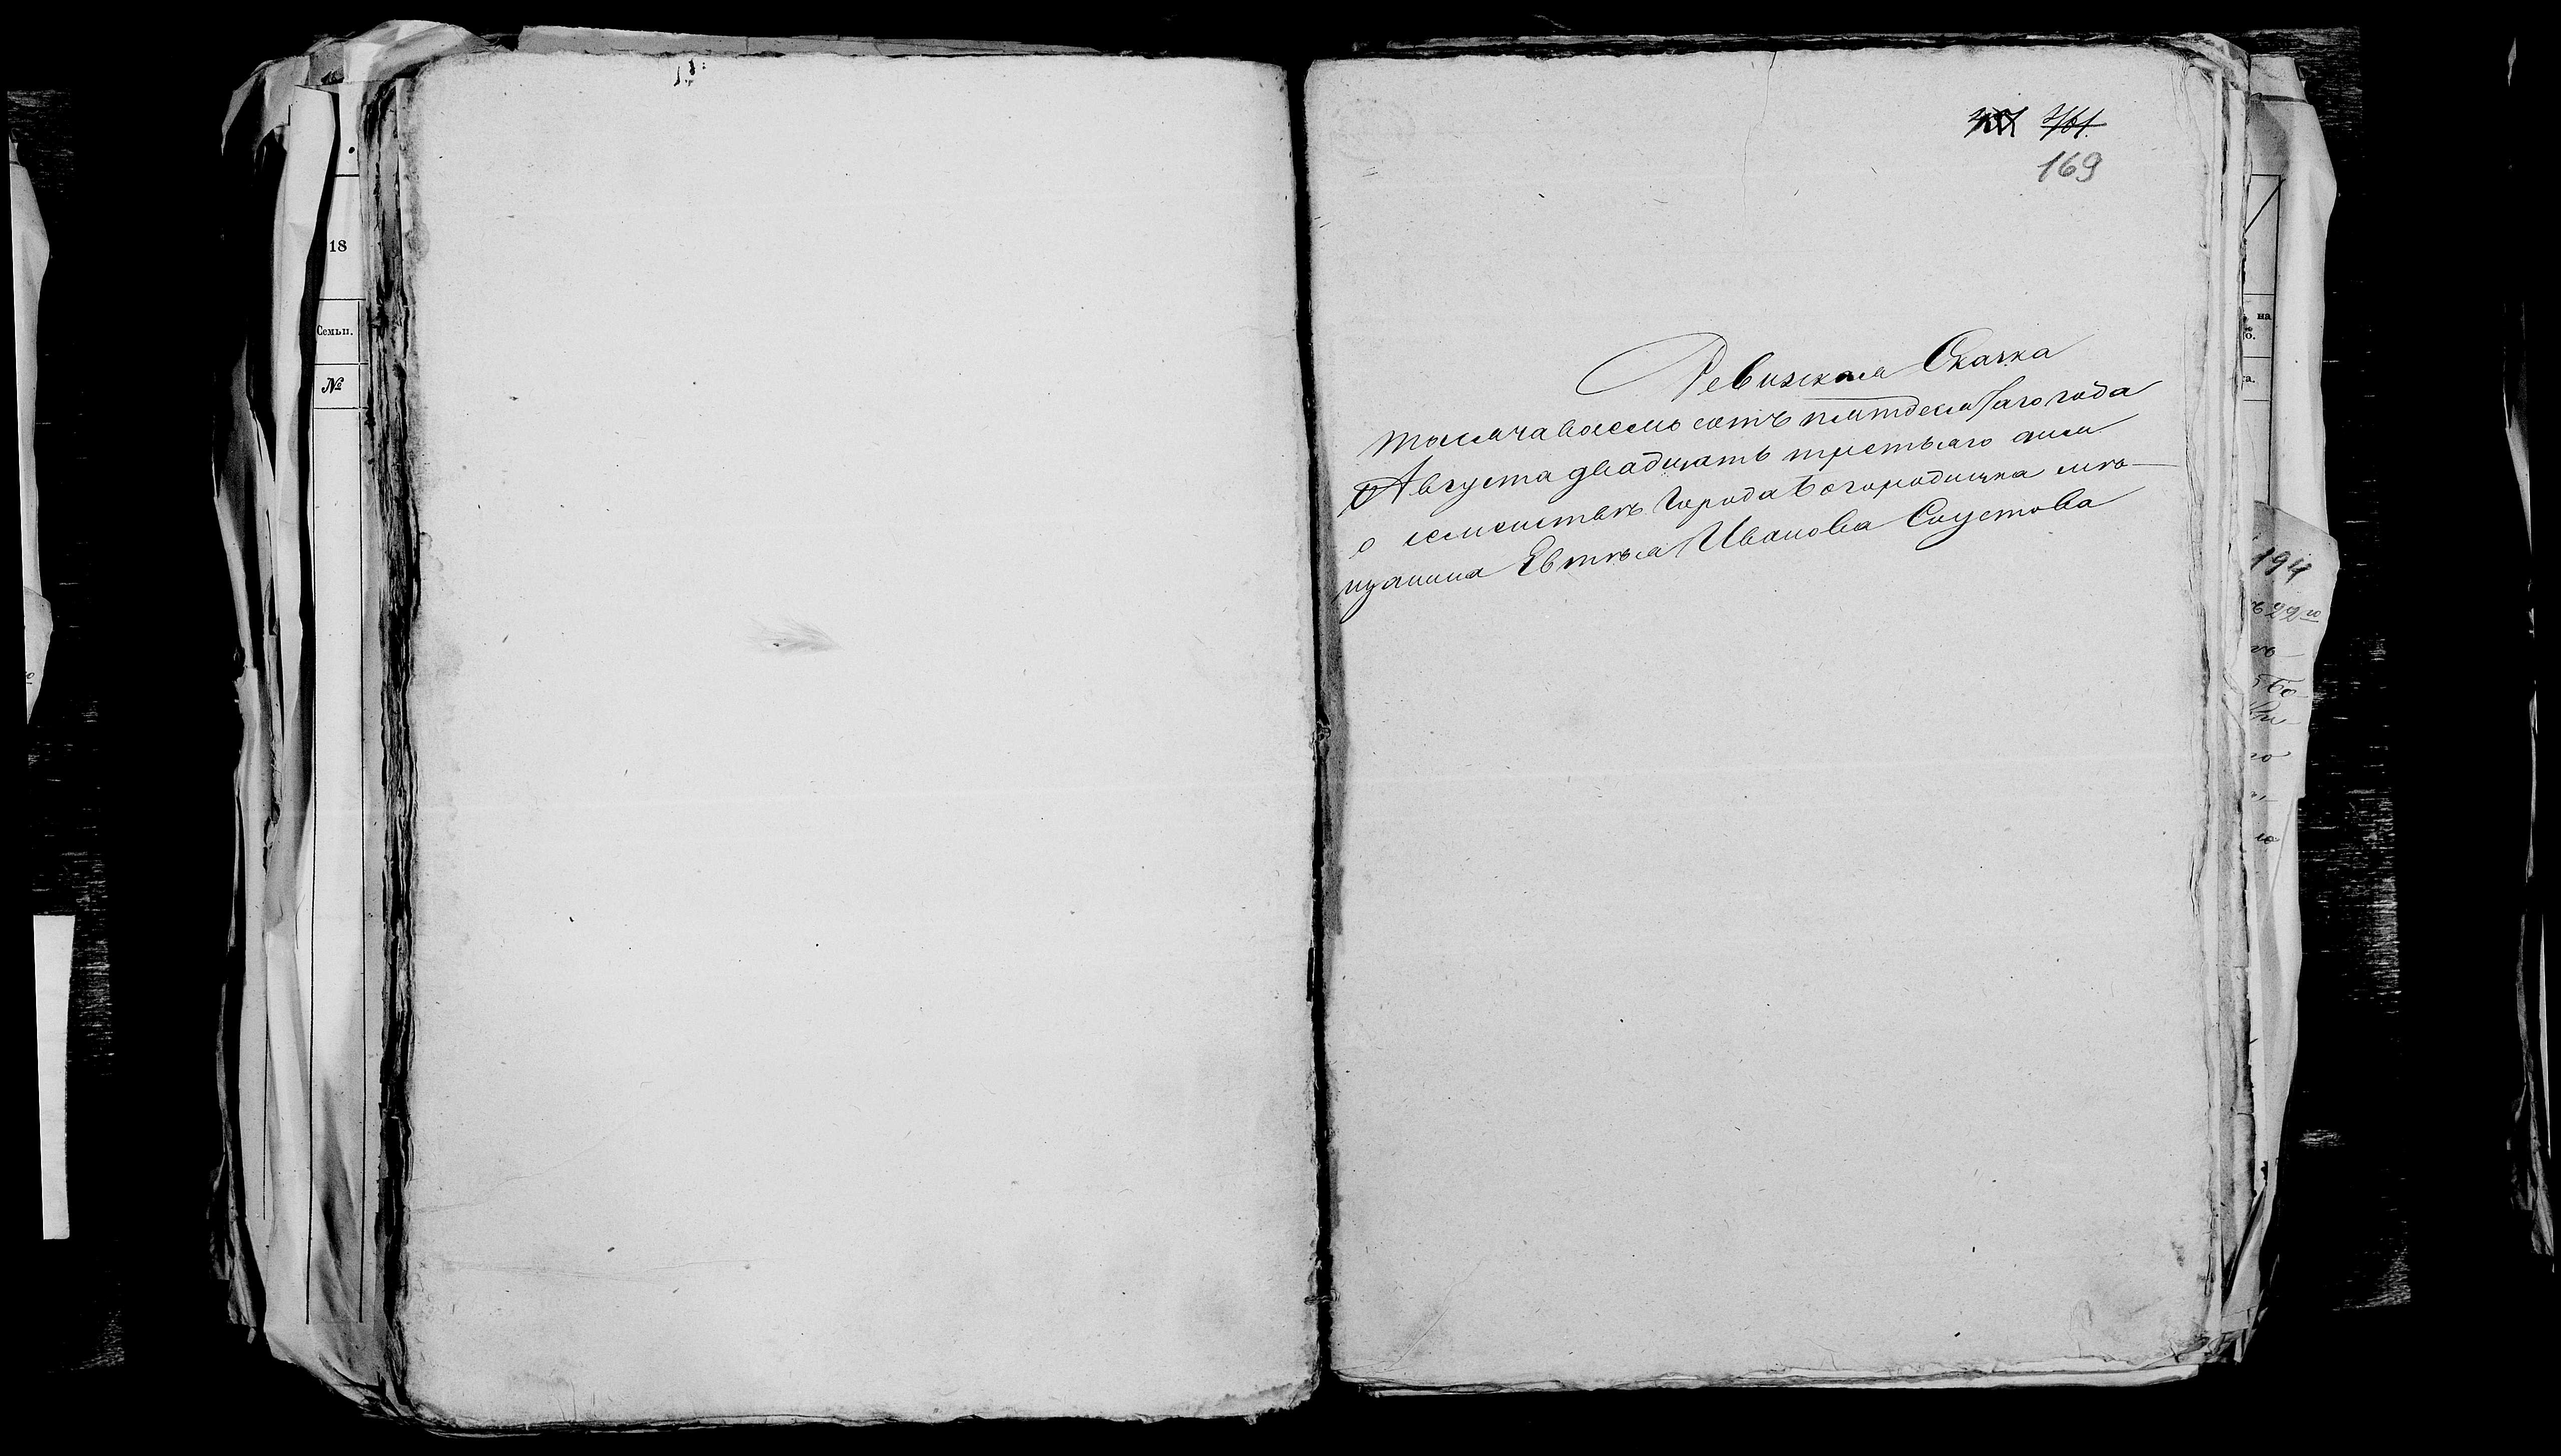 18
Семьи.
№
169
Ревизская Сказка
тысяча восемь сотъ пятдесятаго года
Августа двадцать третьяго дня
о семействѣ города Богородицка мѣ-
щанина Евтѣя Иванова Соустова
на
194
22го